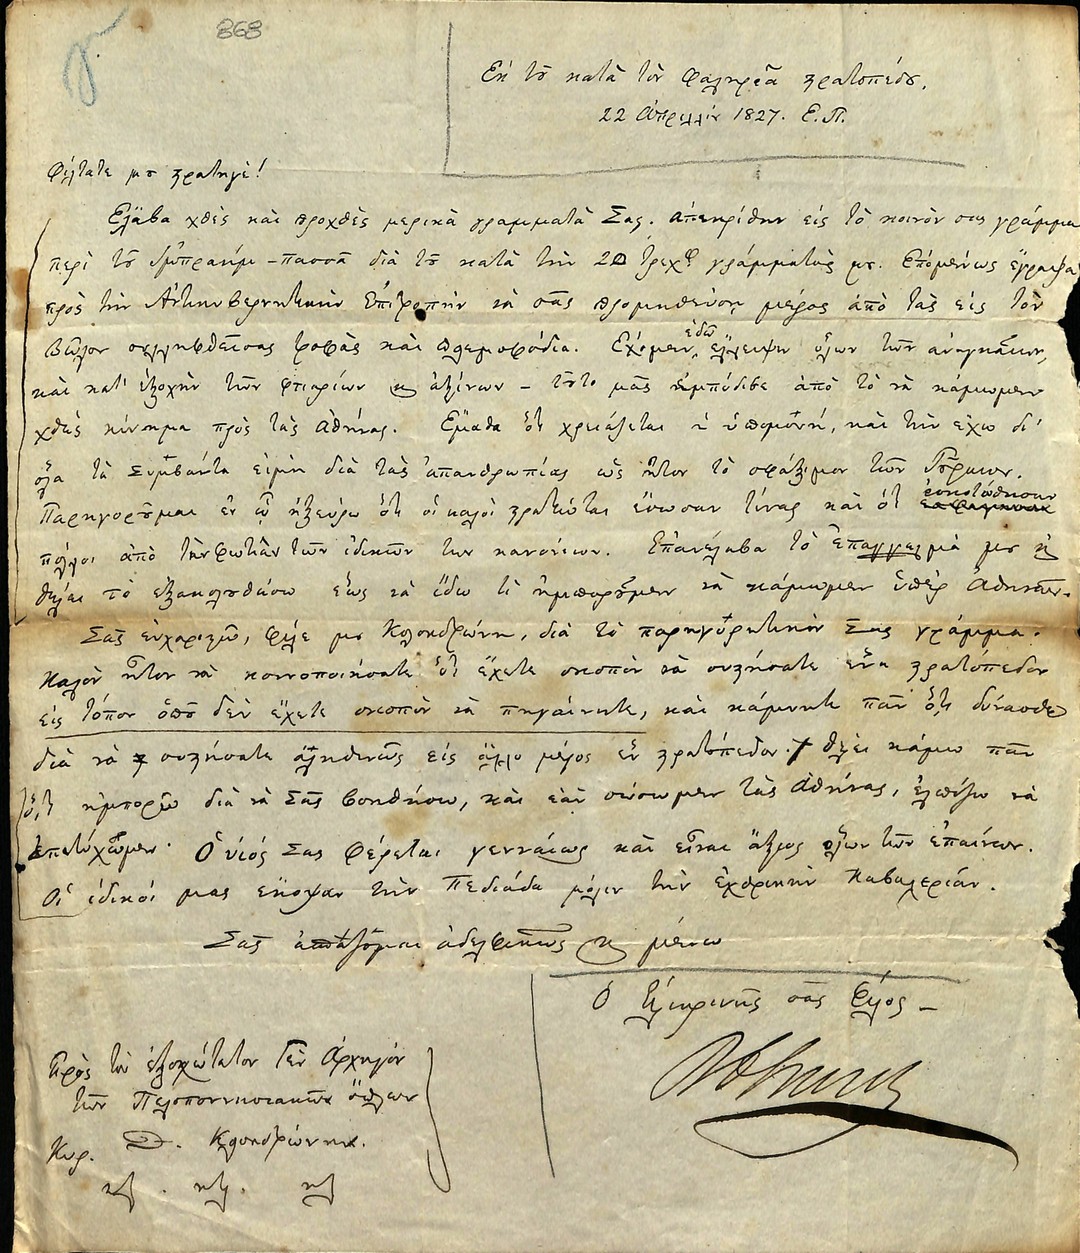 868
Ἐκ τȣ͂ κατὰ τὸν Φαληρέα στρατοπέδου.
22 Ἀπριλλίȣ 1827. Ε.Π.
Φίλτατέ μȣ στρατηγέ!
Ἔλαβα χθὲς καὶ προχθὲς μερικὰ γράμματά Σας. ἀπεκρίθην εἰς τὸ κοινόν σας γράμμα
περὶ τȣ͂ Ἰμπραήμ-πασσᾶ διὰ τȣ͂ κατὰ τὴν 20 τρεχ. γράμματός μȣ. Ἑπομένως ἔγραψα
πρὸς τὴν Ἀντικυβερνητικὴν Ἐπιτροπὴν νὰ σᾶς προμηθεύσῃ μέρος ἀπὸ τὰς εἰς τὸν
Βῶλον συλληφθείσας τροφὰς καὶ πολεμοφόδια. Ἔχομεν ἐδῶ ἔλλειψιν ὅλων τῶν ἀναγκαίων,
καὶ κατ' ἐξοχὴν τῶν φτιαρίων κ ἀξίνων – τȣ͂το μᾶς ἐμπόδισε ἀπὸ τὸ νὰ κάμωμεν
χθὲς κίνημα πρὸς τὰς Ἀθήνας. Ἔμαθα ὅτι χρειάζεται ἡ ὑπομονή, καὶ τὴν ἔχω δι'
ὅλα τὰ συμβάντα εἰμὴ διὰ τὰς ἀπανθρωπίας ὡς ἦτον τὸ σφάξιμον τῶν Τȣ́ρκων.
Παρηγορȣ͂μαι ἐν ᾧ ἠξεύρω ὅτι οἱ καλοὶ στρατιῶται ἔσωσαν τινὰς καὶ ὅτι ἐσκοτώθησαν
πολλοὶ ἀπὸ τὴν φωτιὰν τῶν ἰδικῶν των κανονίων. Ἐπανέλαβα τὸ ἐπάγγελμά μȣ κ
θέλει τὸ ἐξακολȣθήσω ἕως νὰ ἴδω τί ἠμπορȣ͂μεν νὰ κάμωμεν ὑπὲρ Ἀθηνῶν.
Σᾶς εὐχαριστῶ, φίλε μȣ Κολοκοτρώνη, διὰ τὸ παρηγορητικόν Σας γράμμα.
Καλὸν ἦτον νὰ κοινοποιήσατε ὅτι ἔχετε σκοπὸν νὰ συζήσατε ἕνα στρατόπεδον
εἰς τόπον ὁπȣ͂ δὲν ἔχετε σκοπὸν νὰ πηγαίνητε, καὶ κάμνητε πᾶν ὅ,τι δύνασθε
διὰ νὰ συζήσατε ἀληθινῶς εἰς ἄλλο μέρος ἓν στρατόπεδον. θέλει κάμω πᾶν
ὅ,τι ἠμπορῶ διὰ νὰ Σᾶς βοηθήσω, καὶ ἐὰν σώσωμεν τὰς Ἀθήνας, ἐλπίζω νὰ
ἐπιτύχωμεν. Ὁ υἱός Σας φέρεται γενναίως καὶ εἶναι ἄξιος ὅλων τῶν ἐπαίνων.
Οἱ ἰδικοί μας ἔκοψαν τὴν πεδιάδα μόλιν τὴν ἐχθρικὴν καβαλερίαν.
Σᾶς ἀσπάζομαι ἀδελφικῶς κ μένω
Ὁ εἰλικρινής σας φίλος –
Πρὸς τὸν ἐξοχώτατον Γεν. Ἀρχηγόν
τῶν Πελοποννησιακῶν ὅπλων
Κυρ. Θ. Κολοκοτρώνην.
κλ. κλ. κλ